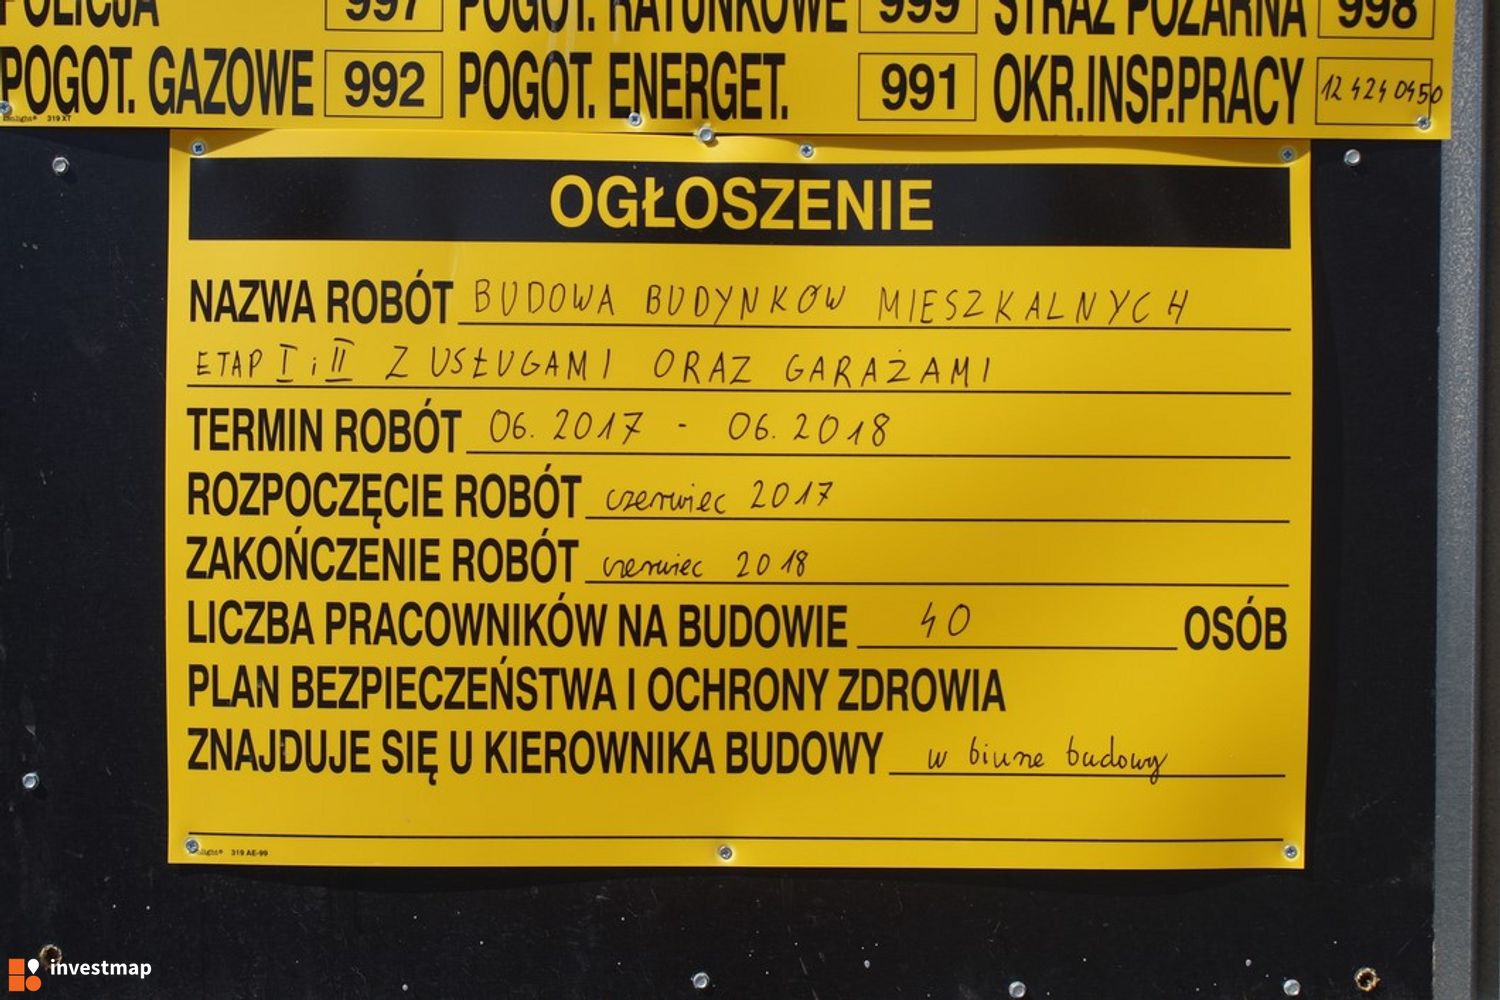 POLICJA 997 POGOT. RATUNKOWE 999 STRAŻ POŻARNA 998
POGOT. GAZOWE 992 POGOT. ENERGET. 991 OKR.INSP.PRACY 12 424 0450
319 XT
OGŁOSZENIE
NAZWA ROBÓT BUDOWA BUDYNKÓW MIESZKALNYCH
ETAP I i II Z USŁUGAMI ORAZ GARAŻAMI
TERMIN ROBÓT 06.2017 - 06.2018
ROZPOCZĘCIE ROBÓT czerwiec 2017
ZAKOŃCZENIE ROBÓT czerwiec 2018
LICZBA PRACOWNIKÓW NA BUDOWIE 40 OSÓB
PLAN BEZPIECZEŃSTWA I OCHRONY ZDROWIA
ZNAJDUJE SIĘ U KIEROWNIKA BUDOWY w biurze budowy
319 AE-99
investmap